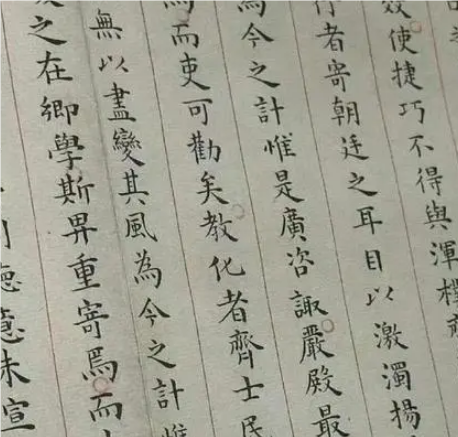 效使捷巧不得與渾樸
行者寄朝廷之耳目以激濁揚
為今之計惟是廣咨諏嚴殿最
焉而吏可勸矣教化者齊士民
無以盡變其風為今之計惟
之在鄉學斯畀重寄焉而
德意未宣